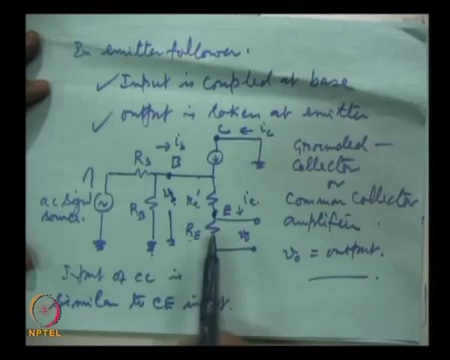 In emitter follower.
✓ Input is coupled at base
✓ output is taken at emitter
C ← ic
→ ib
B
Rs
ac signal
source.
RB
re'
E ↓ ie
RE
vo
Grounded —
Collector
or
Common Collector
amplifier
vo = output.
Input of CC is
similar to CE
NPTEL